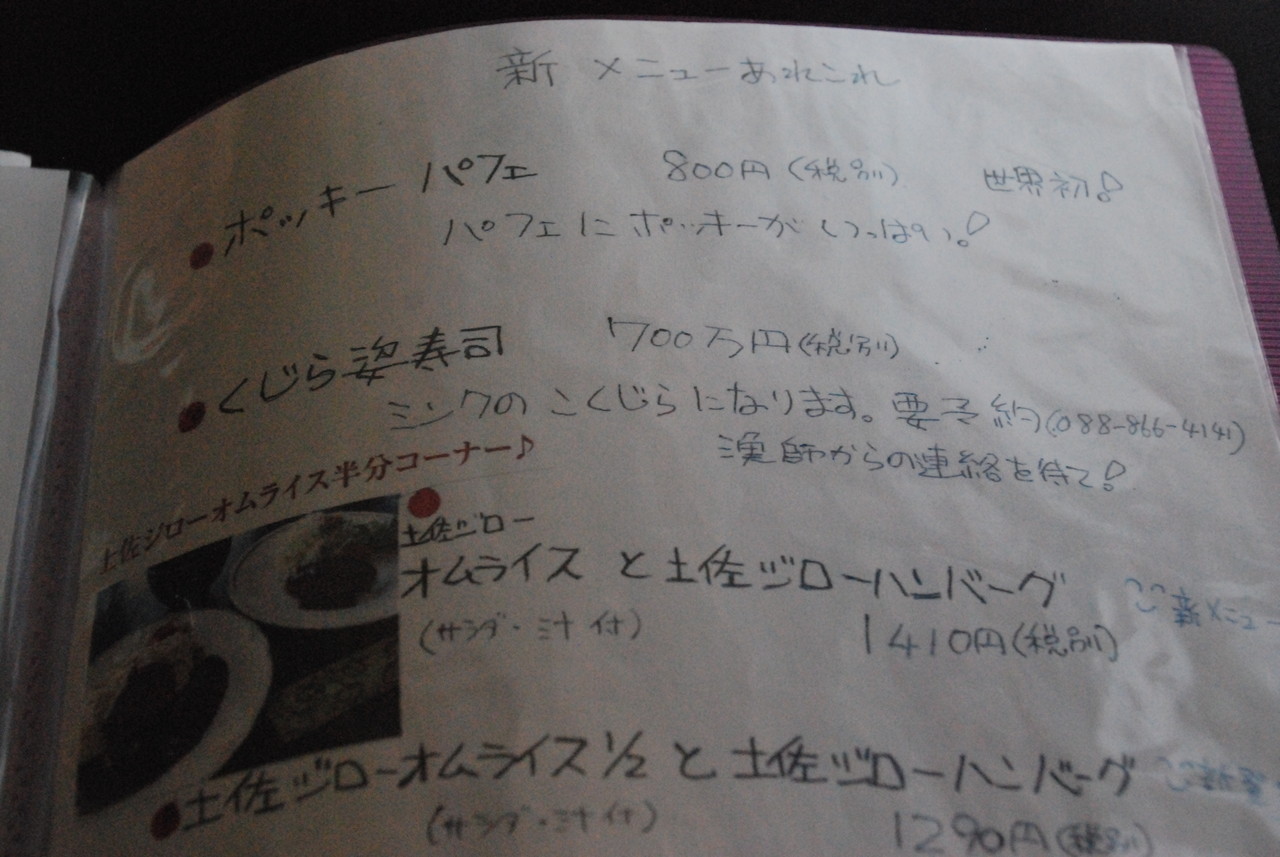 新 メニューあれこれ
●ポッキー パフェ 800円(税別) 世界初!
パフェにポッキーがいっぱい!
●くじら姿寿司 700万円(税別)
ミンクのこくじらになります。要予約(088-866-4141)
漁師からの連絡を待て!
土佐ジローオムライス半分コーナー♪
●土佐ジロー
オムライス と土佐ジローハンバーグ 新メニュー
(サラダ・汁付) 1410円(税別)
●土佐ジローオムライス1/2 と 土佐ジローハンバーグ
(サラダ・汁付) 1290円(税別)